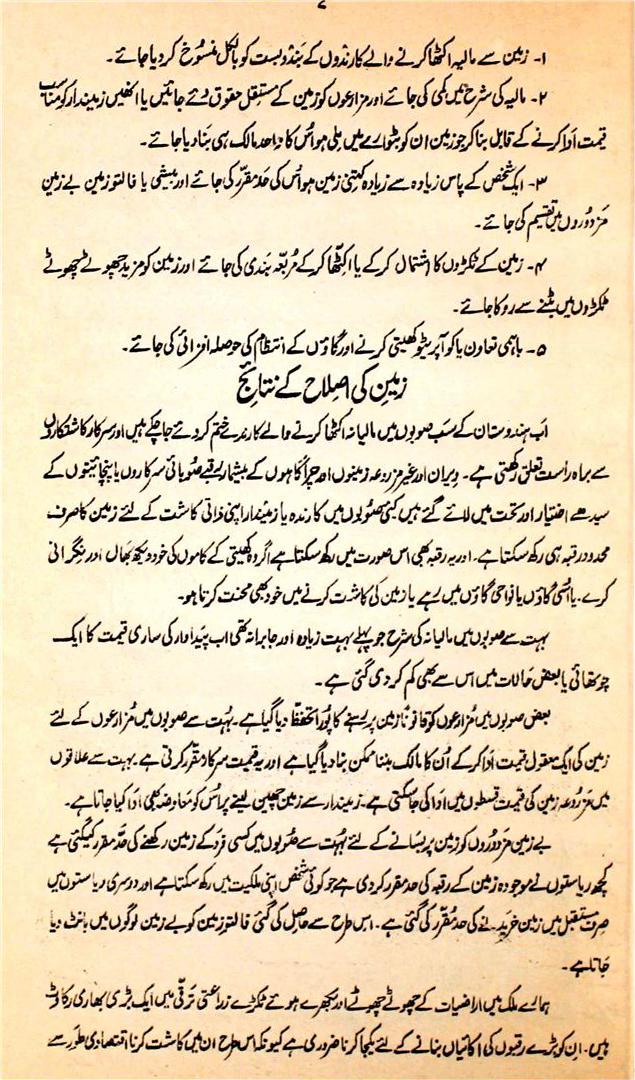 ۷
۱۔ زمین سے مالیہ اکٹھا کرنے والے کارندوں کے بندوبست کو بالکل منسوخ کردیا جائے۔
۲۔ مالیہ کی شرح میں کمی کی جائے اور مزارعوں کو زمین کے مستقل حقوق دئے جائیں یا انھیں زمیندار کو مناسب
قیمت ادا کرنے کے قابل بنا کر جو زمین ان کو بٹوارے میں ملی ہو اُس کا واحد مالک ہی بنا دیا جائے۔
۳۔ ایک شخص کے پاس زیادہ سے زیادہ کتنی زمین ہو اُس کی حد مقرر کی جائے اور بیشی یا فالتو زمین بے زمین
مزدوروں میں تقسیم کی جائے۔
۴۔ زمین کے ٹکڑوں کا اشتمال کرکے یا اکٹھا کرکے مُربّعہ بندی کی جائے اور زمین کو مزید چھوٹے چھوٹے
ٹکڑوں میں بٹنے سے روکا جائے۔
۵۔ باہمی تعاون یا کوآپریٹو کھیتی کرنے اور گاؤں کے انتظام کی حوصلہ افزائی کی جائے۔
زمین کی اصلاح کے نتائج
اب ہندوستان کے سب صوبوں میں مالیانہ اکٹھا کرنے والے کارندے ختم کردئے جاچکے ہیں اور سرکار کاشتکاروں
سے براہ راست تعلق رکھتی ہے۔ ویران اور غیر مزروعہ زمینوں اور چراگاہوں کے بیشمار رقبے صوبائی سرکاروں یا پنچائیتوں کے
سیدھے اختیار اور تحت میں لائے گئے ہیں کئی صوبوں میں کارندہ یا زمیندار اپنی ذاتی کاشت کے لئے زمین کا صرف
محدود رقبہ ہی رکھ سکتا ہے۔ اور یہ رقبہ بھی اس صورت میں رکھ سکتا ہے اگر وہ کھیتی کے کاموں کی خود دیکھ بھال اور نگرانی
کرے۔ یا اُسی گاؤں یا نواحی گاؤں میں رہے یا زمین کی کاشت کرنے میں خود بھی محنت کرتا ہو۔
بہت سے صوبوں میں مالیانہ کی شرح جو پہلے بہت زیادہ اور جابرانہ تھی اب پیداوار کی ساری قیمت کا ایک
چوتھائی یا بعض حالات میں اس سے بھی کم کردی گئی ہے۔
بعض صوبوں میں مُزارعوں کو قانوناً زمین پر بسنے کا پورا تحفّظ دیا گیا ہے۔ بہُت سے صوبوں میں مُزارعوں کے لئے
زمین کی ایک معقول قیمت ادا کرکے اُن کا مالک بننا ممکن بنا دیا گیا ہے اور یہ قیمت سرکار مقرر کرتی ہے۔ بہت سے علاقوں
میں مزروعہ زمین کی قیمت قسطوں میں ادا کی جاسکتی ہے۔ زمیندار سے زمین چھین لینے پر اُس کو معاوضہ بھی ادا کیا جاتا ہے۔
بے زمین مزدوروں کو زمین پر بسانے کے لئے بہُت سے صُوبوں میں کسی فرد کے زمین رکھنے کی حد مقرر کیگئی ہے
کچھ ریاستوں نے موجودہ زمین کے رقبہ کی حد مقرر کردی ہے جو کوئی شخص اپنی ملکیت میں رکھ سکتا ہے اور دوسری ریاستوں میں
صرف مستقبل میں زمین خریدنے کی حد مُقرّر کی گئی ہے۔ اس طرح سے حاصل کی گئی فالتو زمین کو بے زمین لوگوں میں بانٹ دیا
جاتا ہے۔
ہمارے ملک میں اراضیات کے چھوٹے چھوٹے اور بکھرے ہوئے ٹکڑے زراعتی ترقی میں ایک بڑی بھاری رکاوٹ
ہیں۔ ان کو بڑے رقبوں کی اکائیاں بنانے کے لئے یکجا کرنا ضروری ہے کیونکہ اس طرح ان میں کاشت کرنا اقتصادی طور سے